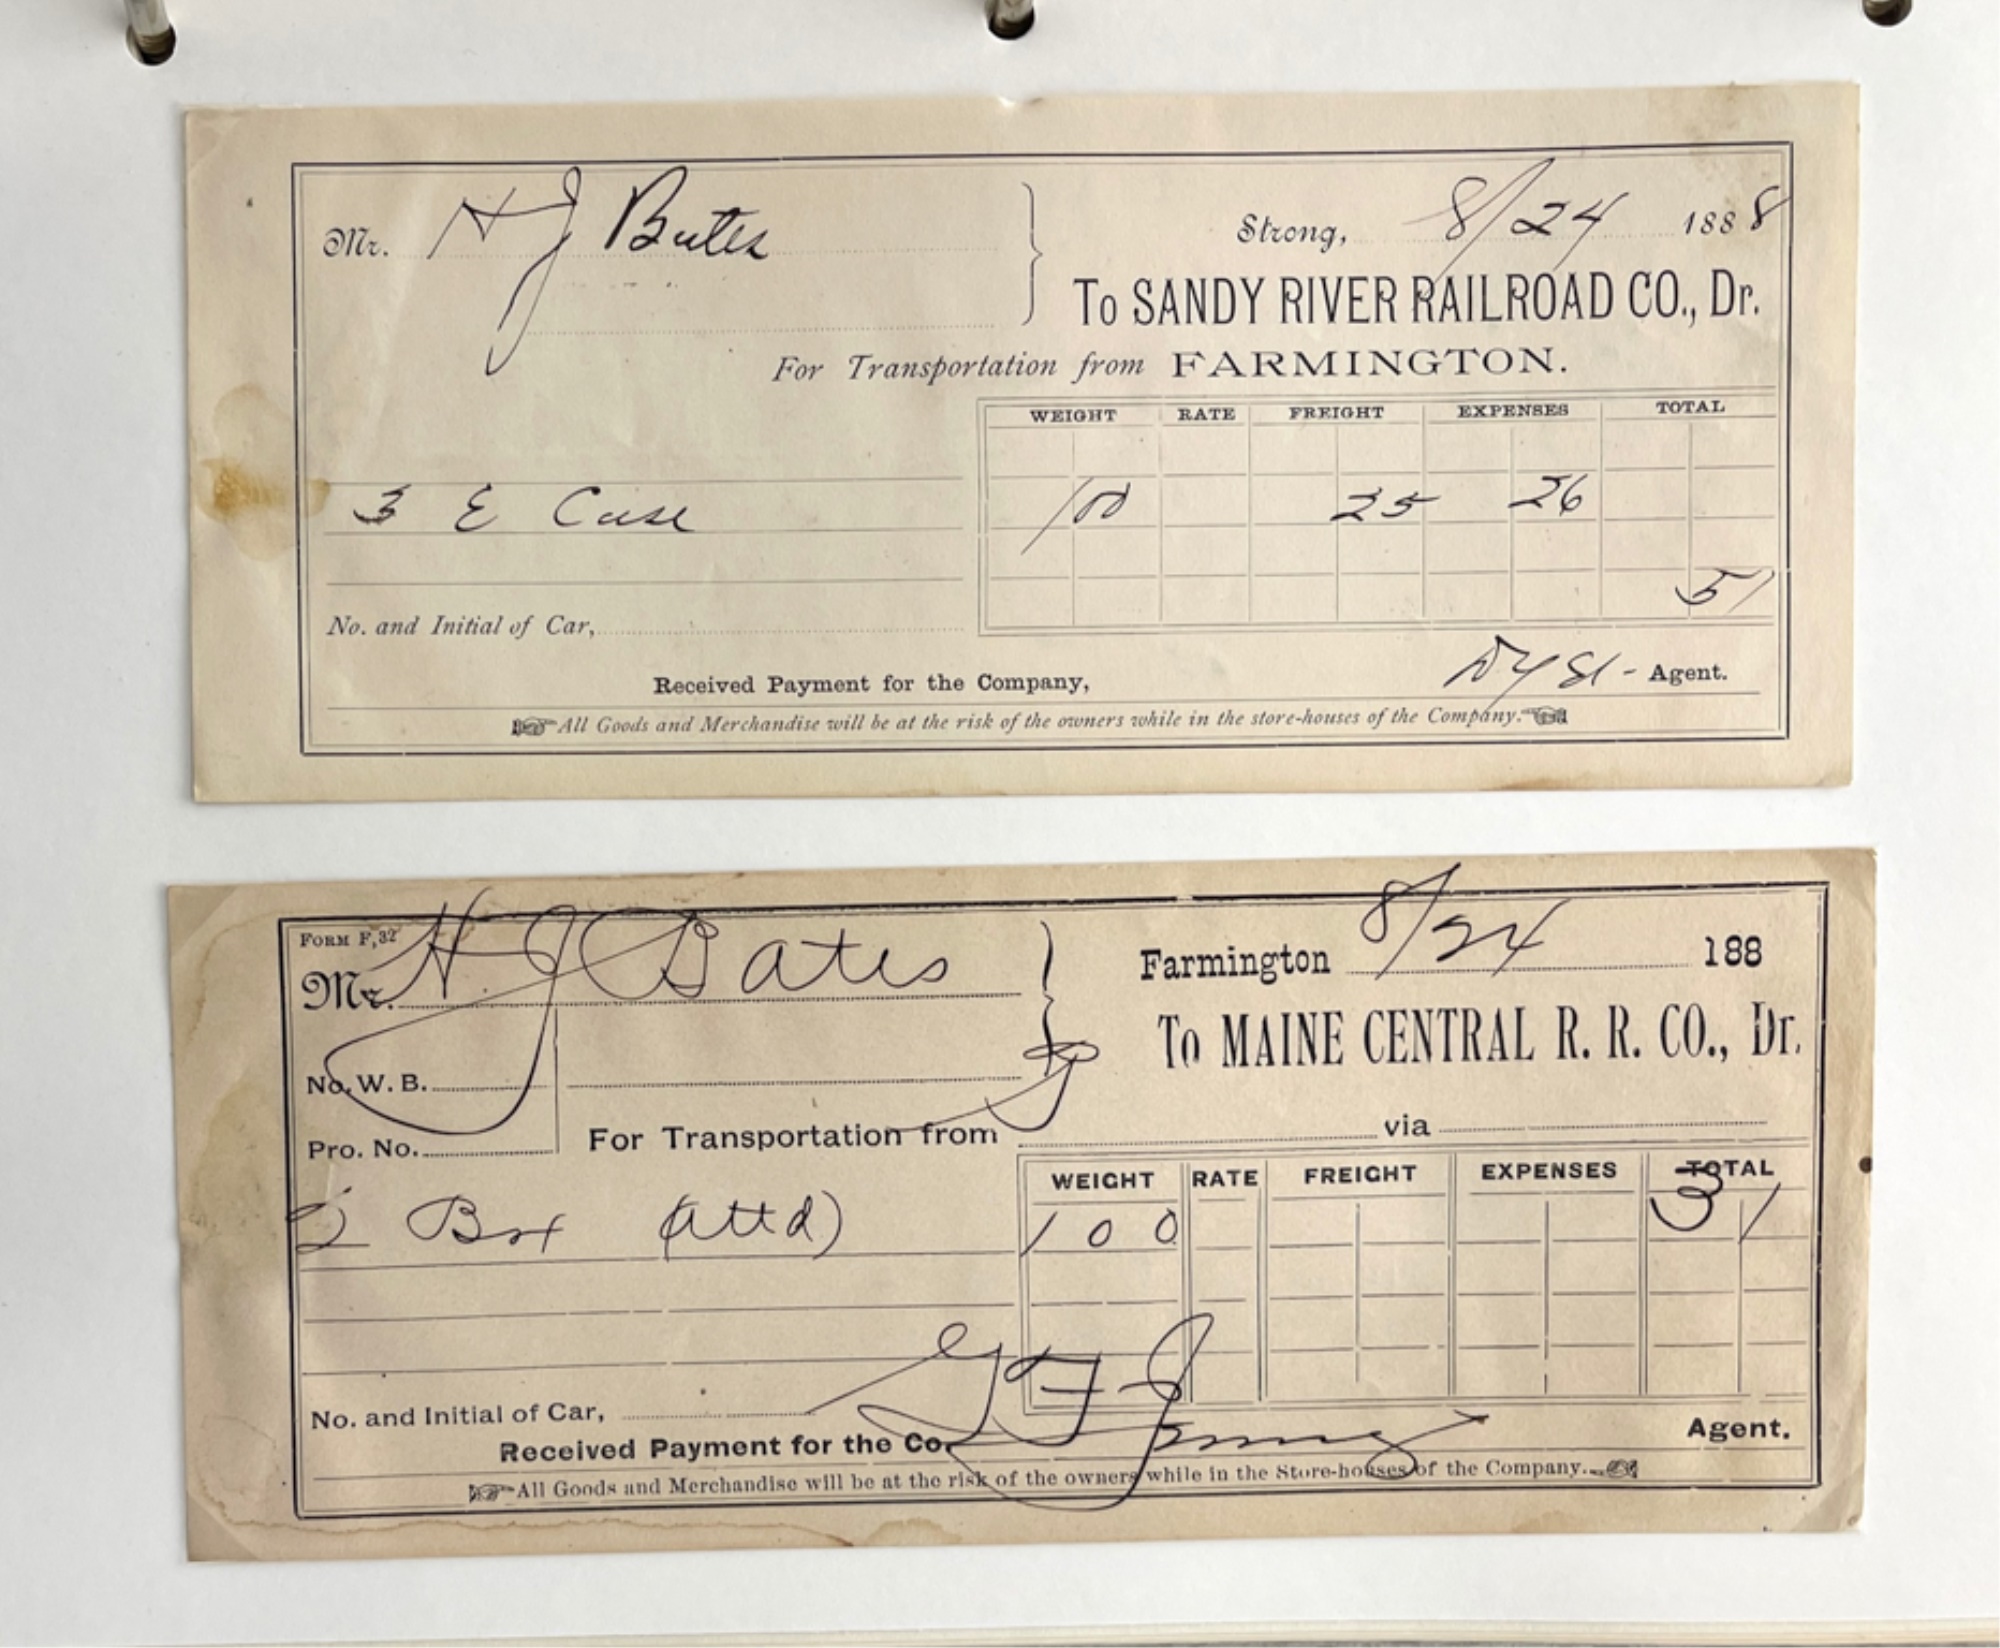 Mr. H J Bates
Strong, 8/24 1888
To SANDY RIVER RAILROAD CO., Dr.
For Transportation from FARMINGTON.
WEIGHT RATE FREIGHT EXPENSES TOTAL
3 E Case 100 25 26
51
No. and Initial of Car,
Received Payment for the Company, Agent.
All Goods and Merchandise will be at the risk of the owners while in the store-houses of the Company.
FORM F, 32
Mr. H J Bates
Farmington 8/24 188
To MAINE CENTRAL R. R. CO., Dr.
No. W. B.
Pro. No.
For Transportation from via
WEIGHT RATE FREIGHT EXPENSES TOTAL
Box (attd) 100 31
No. and Initial of Car,
Received Payment for the Co. Agent.
All Goods and Merchandise will be at the risk of the owners while in the Store-houses of the Company.